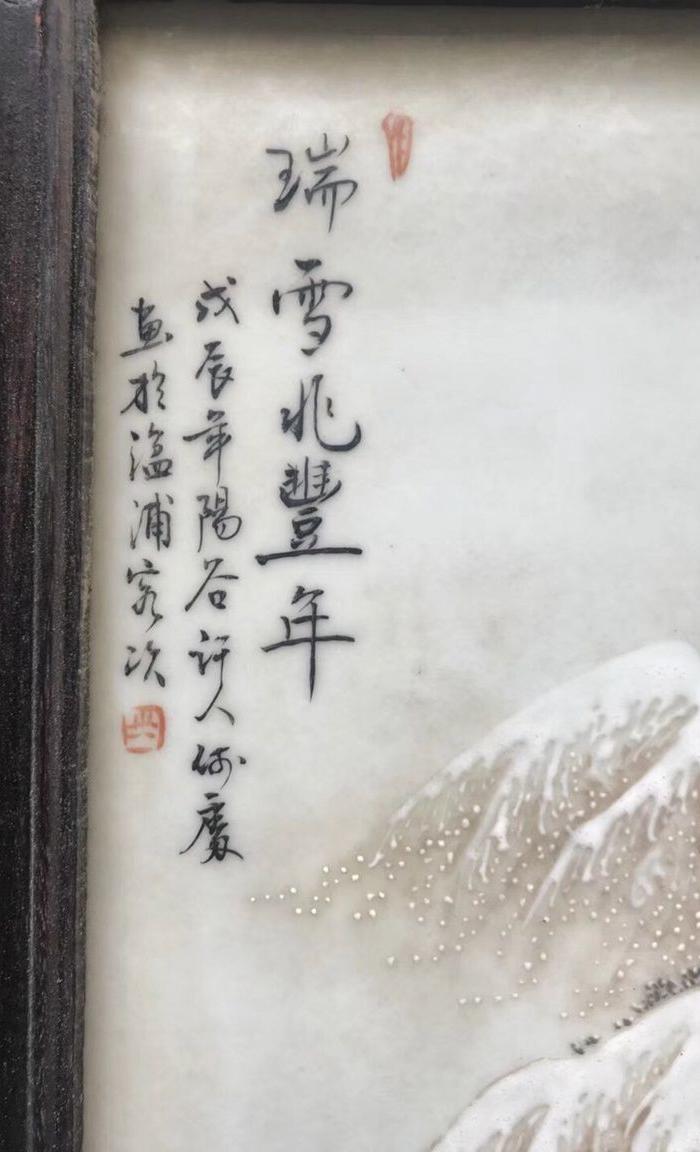 瑞雪兆豐年
戊辰年陽谷許人何慶
畫於湓浦客次